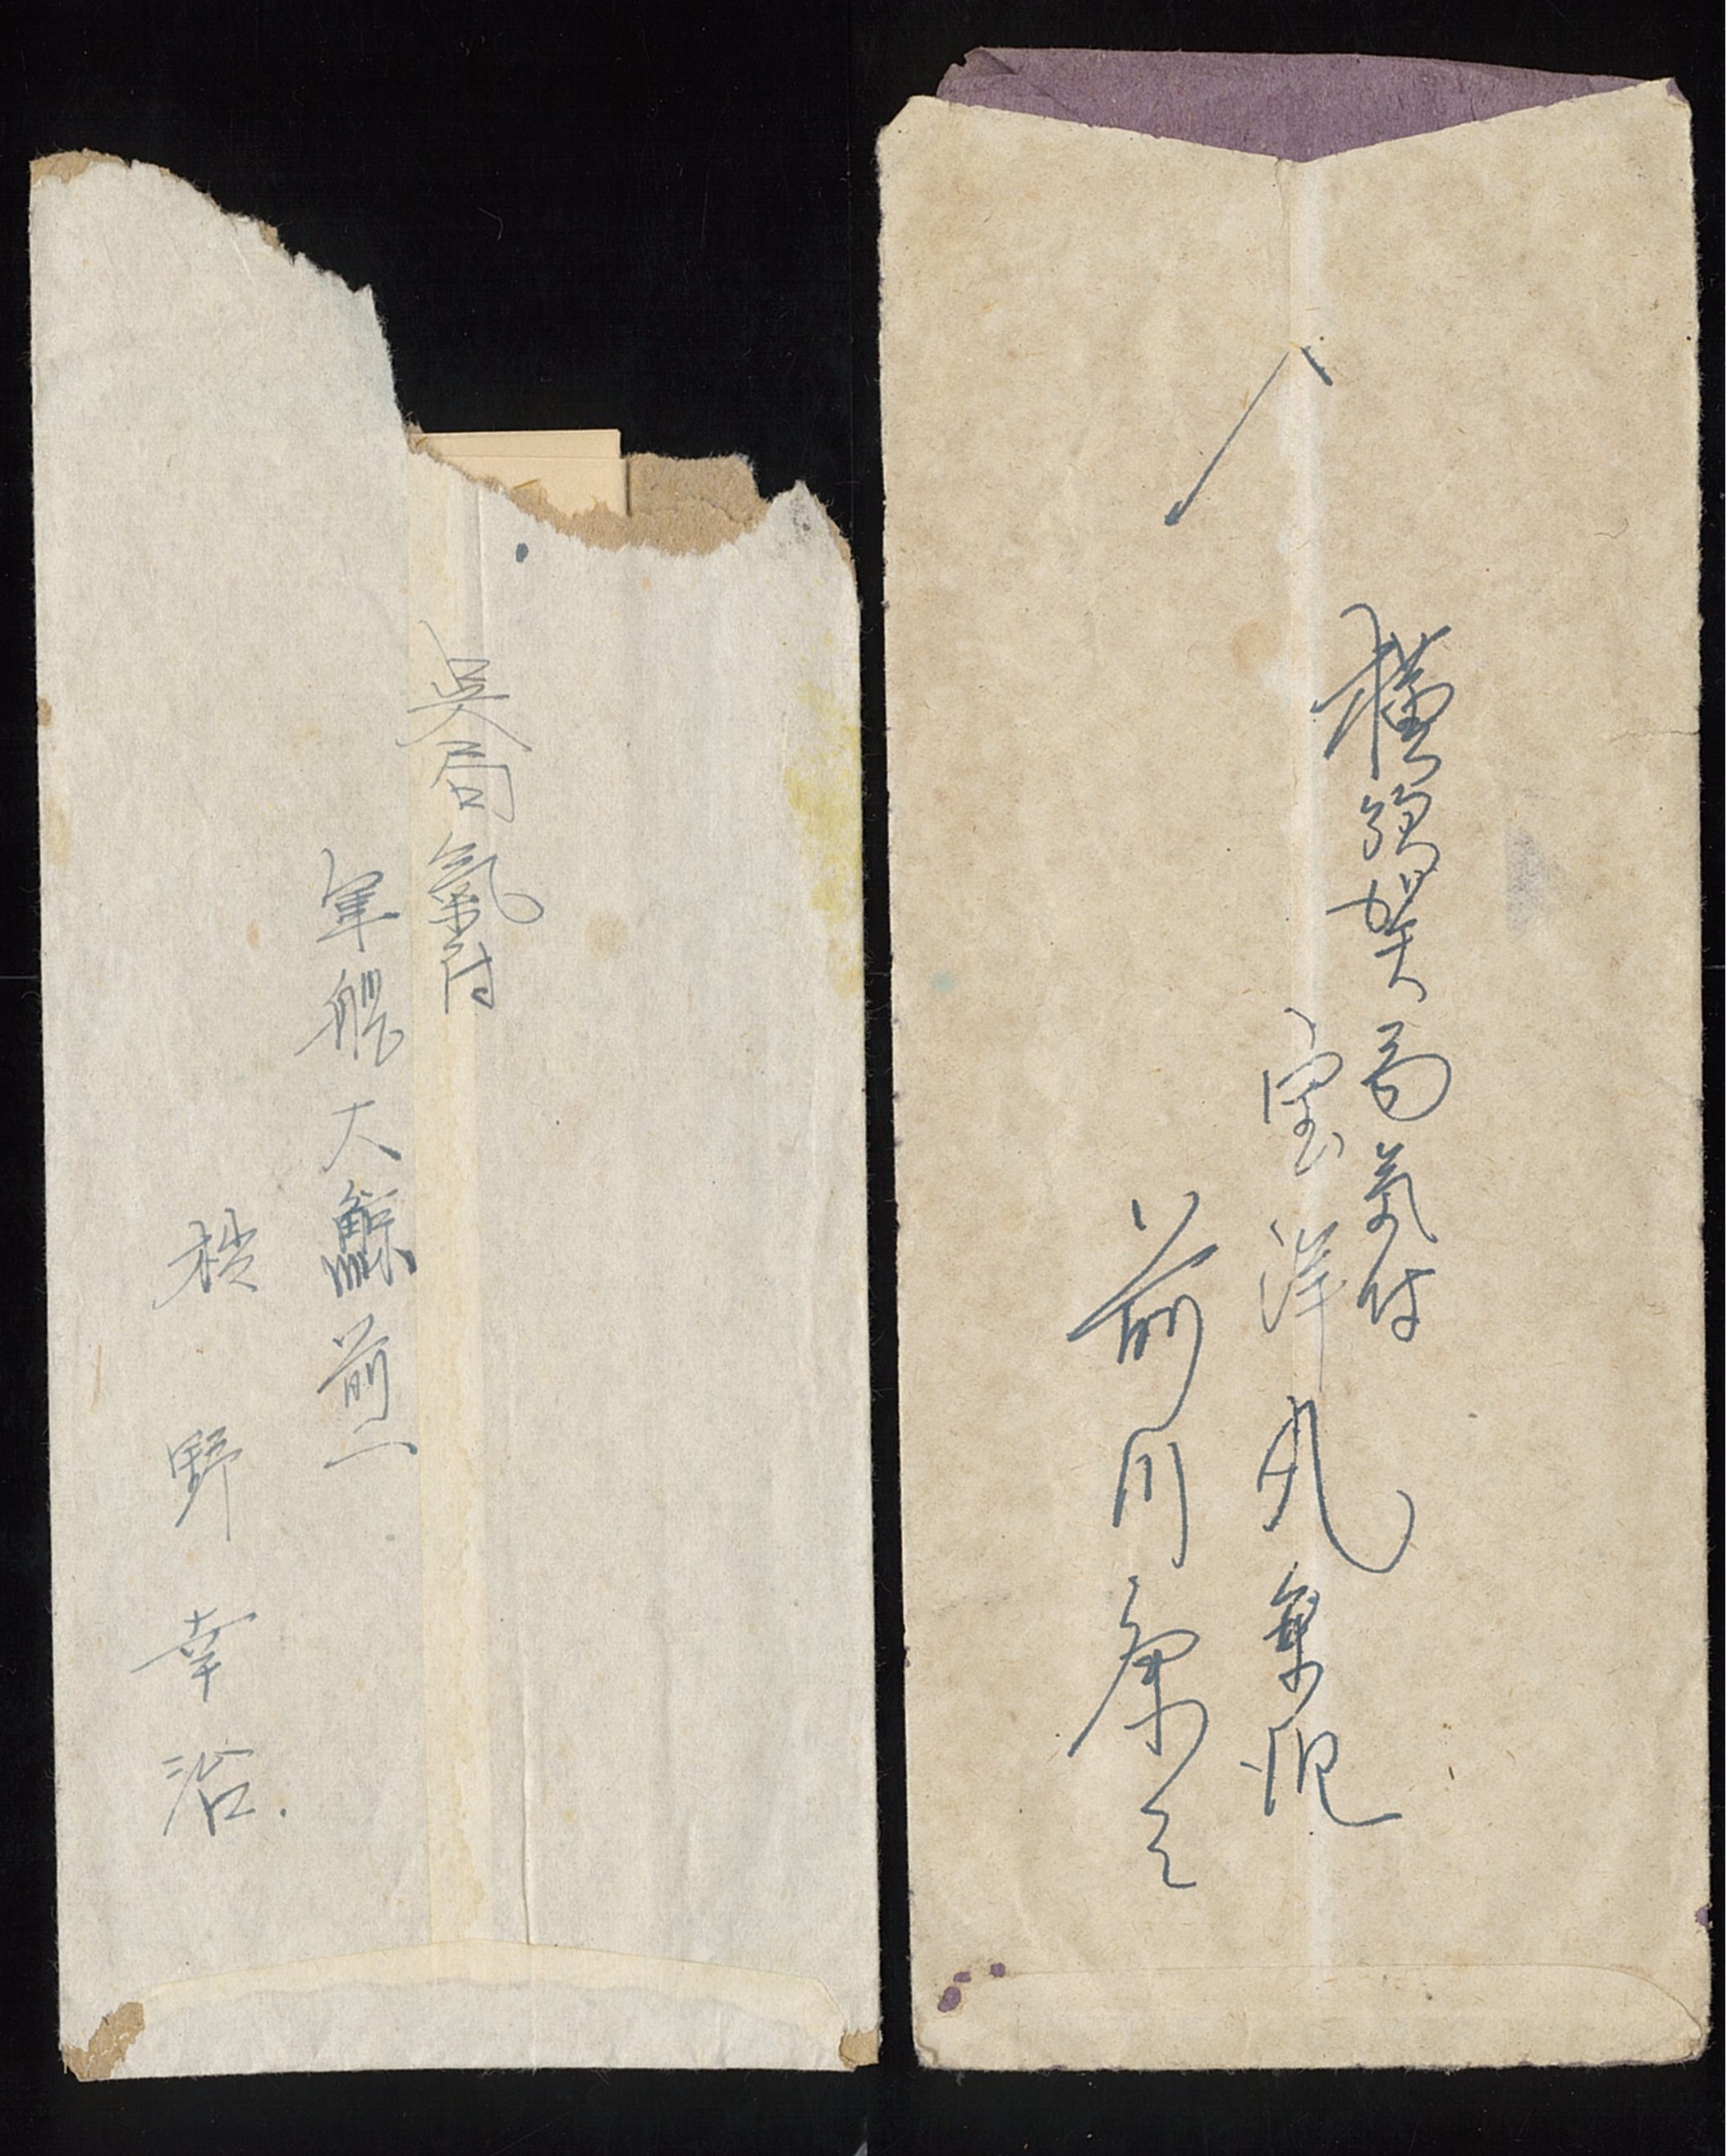 呉局氣付
軍艦大鯨前一
野幸治.
横須賀局氣付
宝洋丸
前川康之